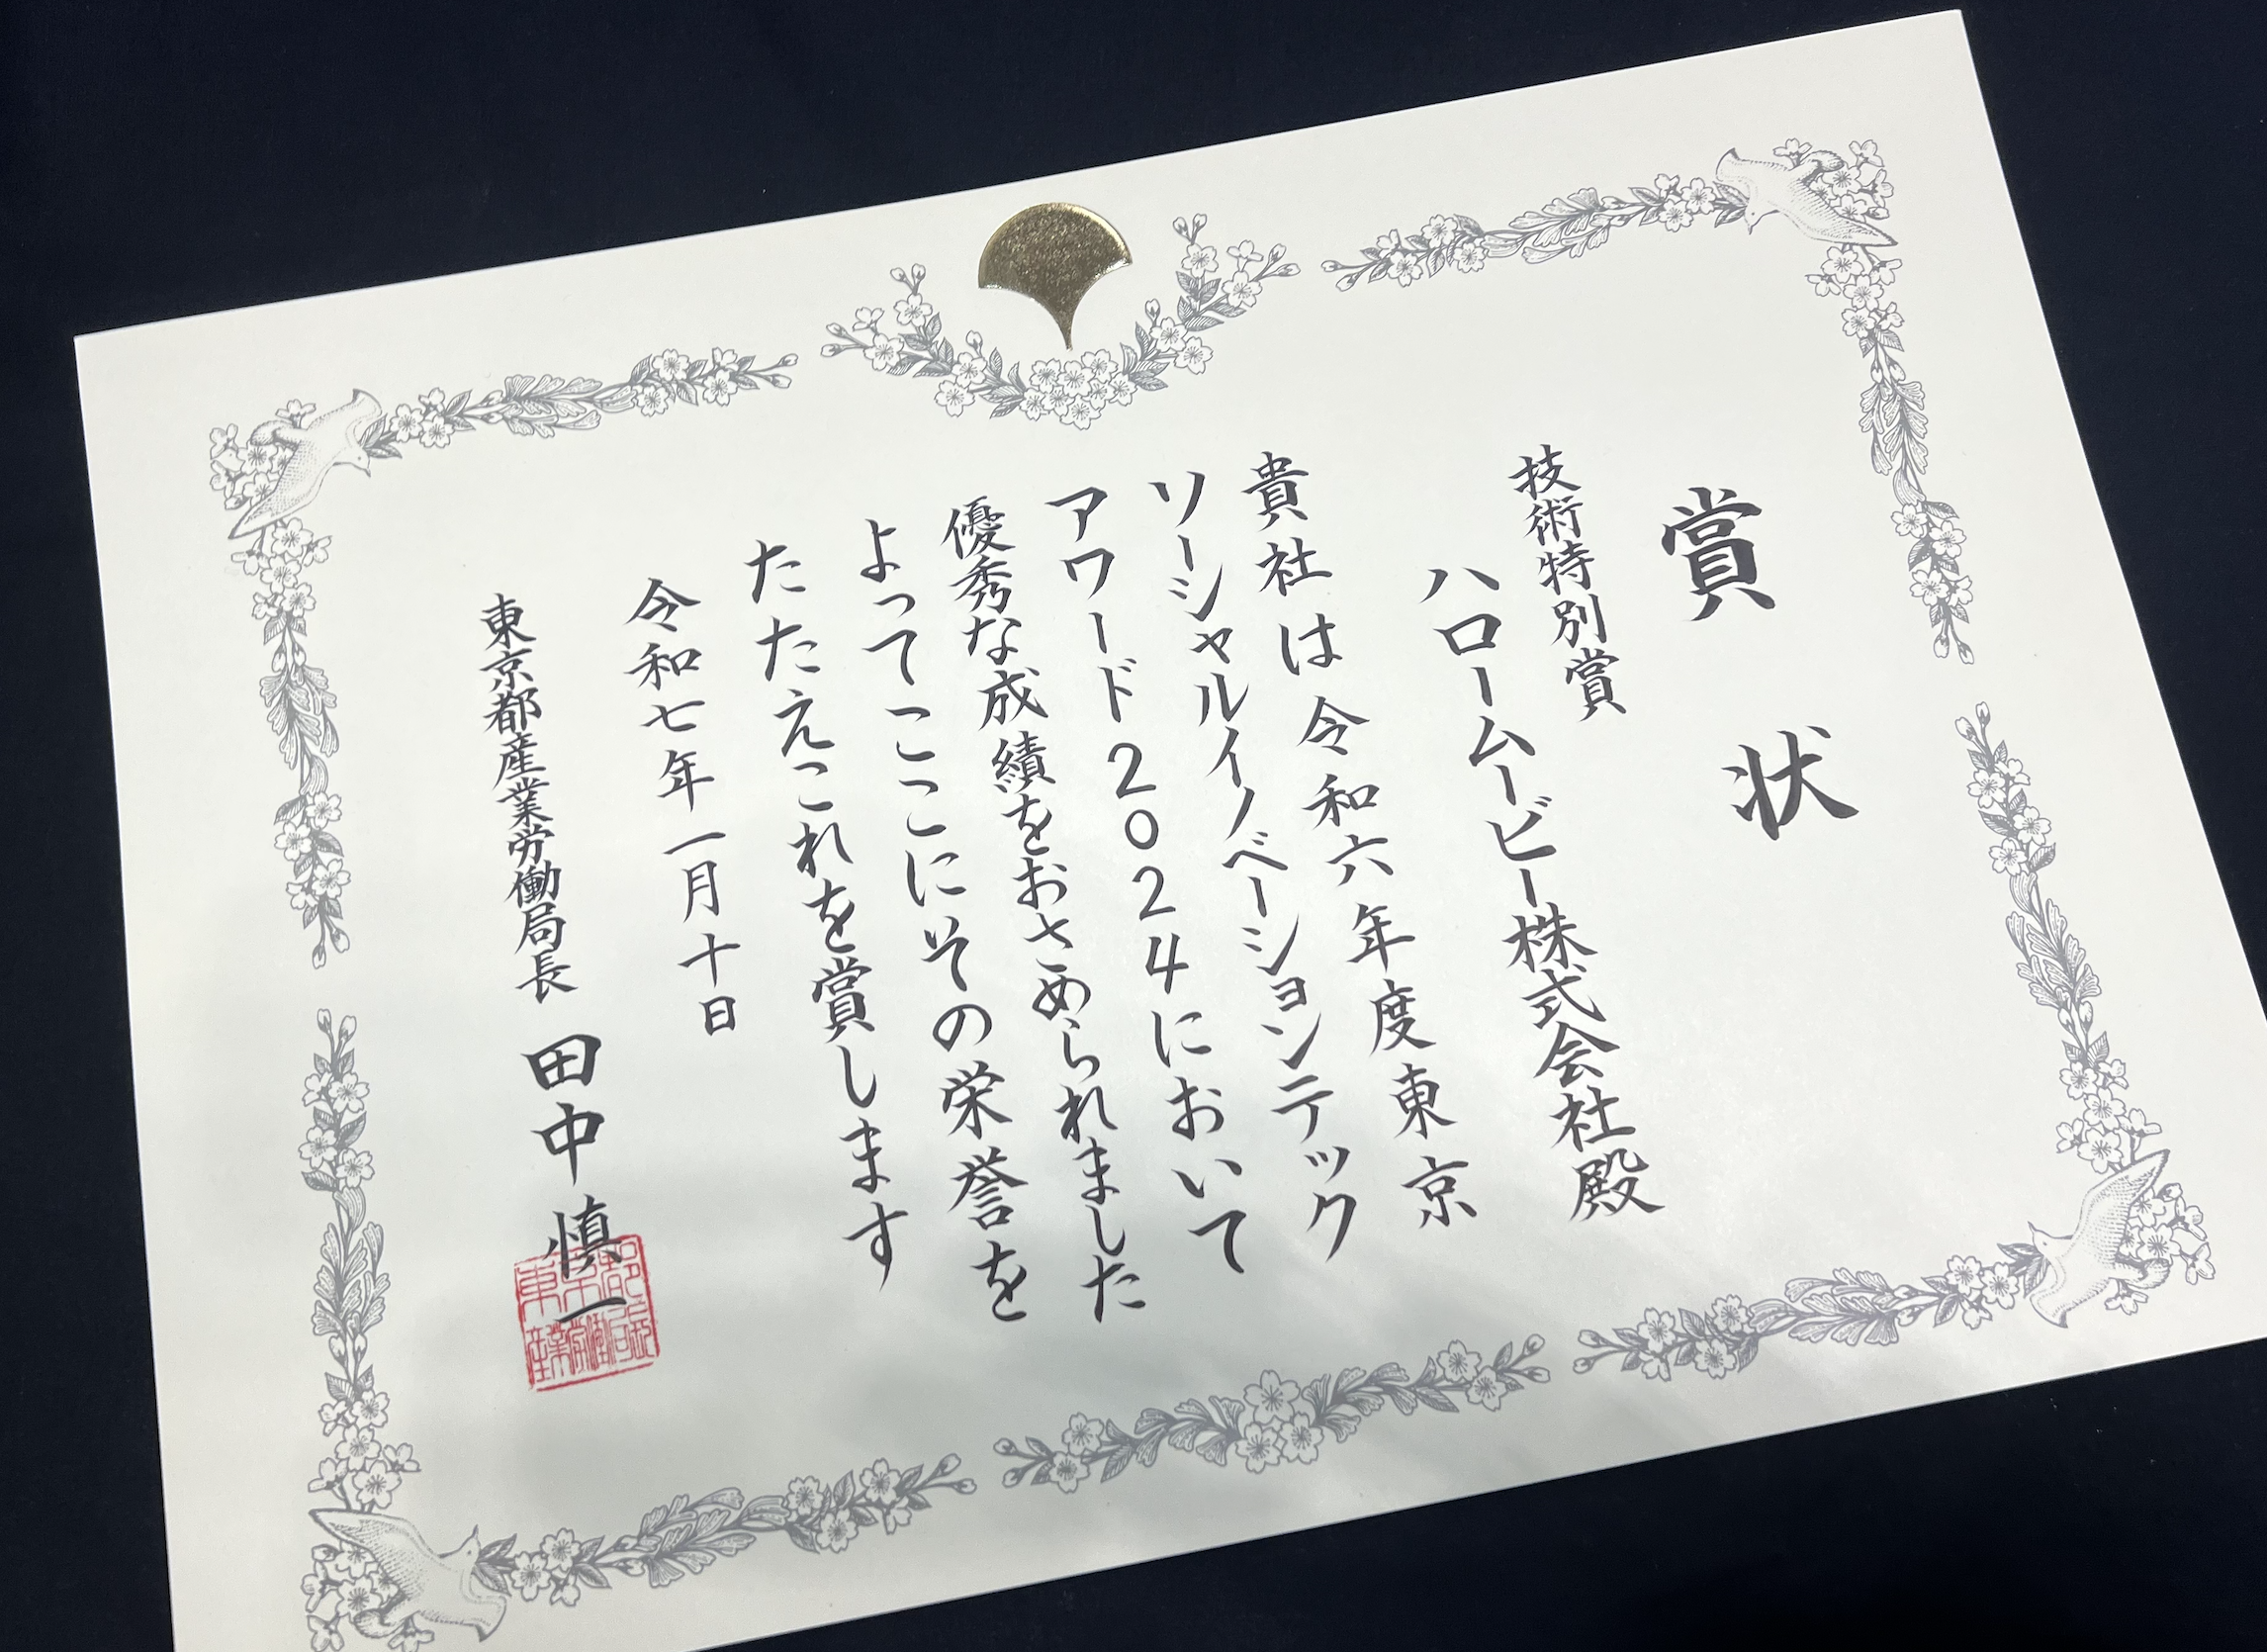 賞状
技術特別賞
ハロームービー株式会社殿
貴社は令和六年度東京
ソーシャルイノベーションテック
アワード2024において
優秀な成績をおさめられました
よってここにその栄誉を
たたえこれを賞します
令和七年一月十日
東京都産業労働局長 田中慎一